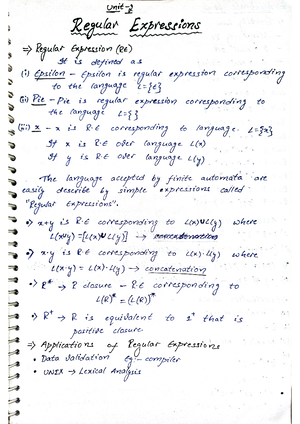 Unit-2
Regular Expressions
⇒ Regular Expression (RE)
It is defined as
(i) Epsilon - Epsilon is regular expression corresponding
to the language L={ε}
(ii) Pie - Pie is regular expression corresponding to
the language L={}
(iii) x - x is R.E corresponding to language. L={x}
If x is R.E over language L(x)
If y is R.E over language L(y)
The language accepted by finite automata are
easily describe by simple expressions called
"Regular Expressions".
•> x+y is R.E corresponding to L(x)∪L(y) where
L(x∪y) = [L(x)∪L(y)] →
•> x·y is R.E corresponding to L(x)·L(y) where
L(x·y) = L(x)·L(y) → concatenation
•> R* → R closure - R.E corresponding to
L(R)* = (L(R))*
•> R⁺ → R is equivalent to that is
positive closure.
⇒ Applications of Regular Expressions
• Data Validation Eg:- compiler
• UNIX → Lexical Analysis